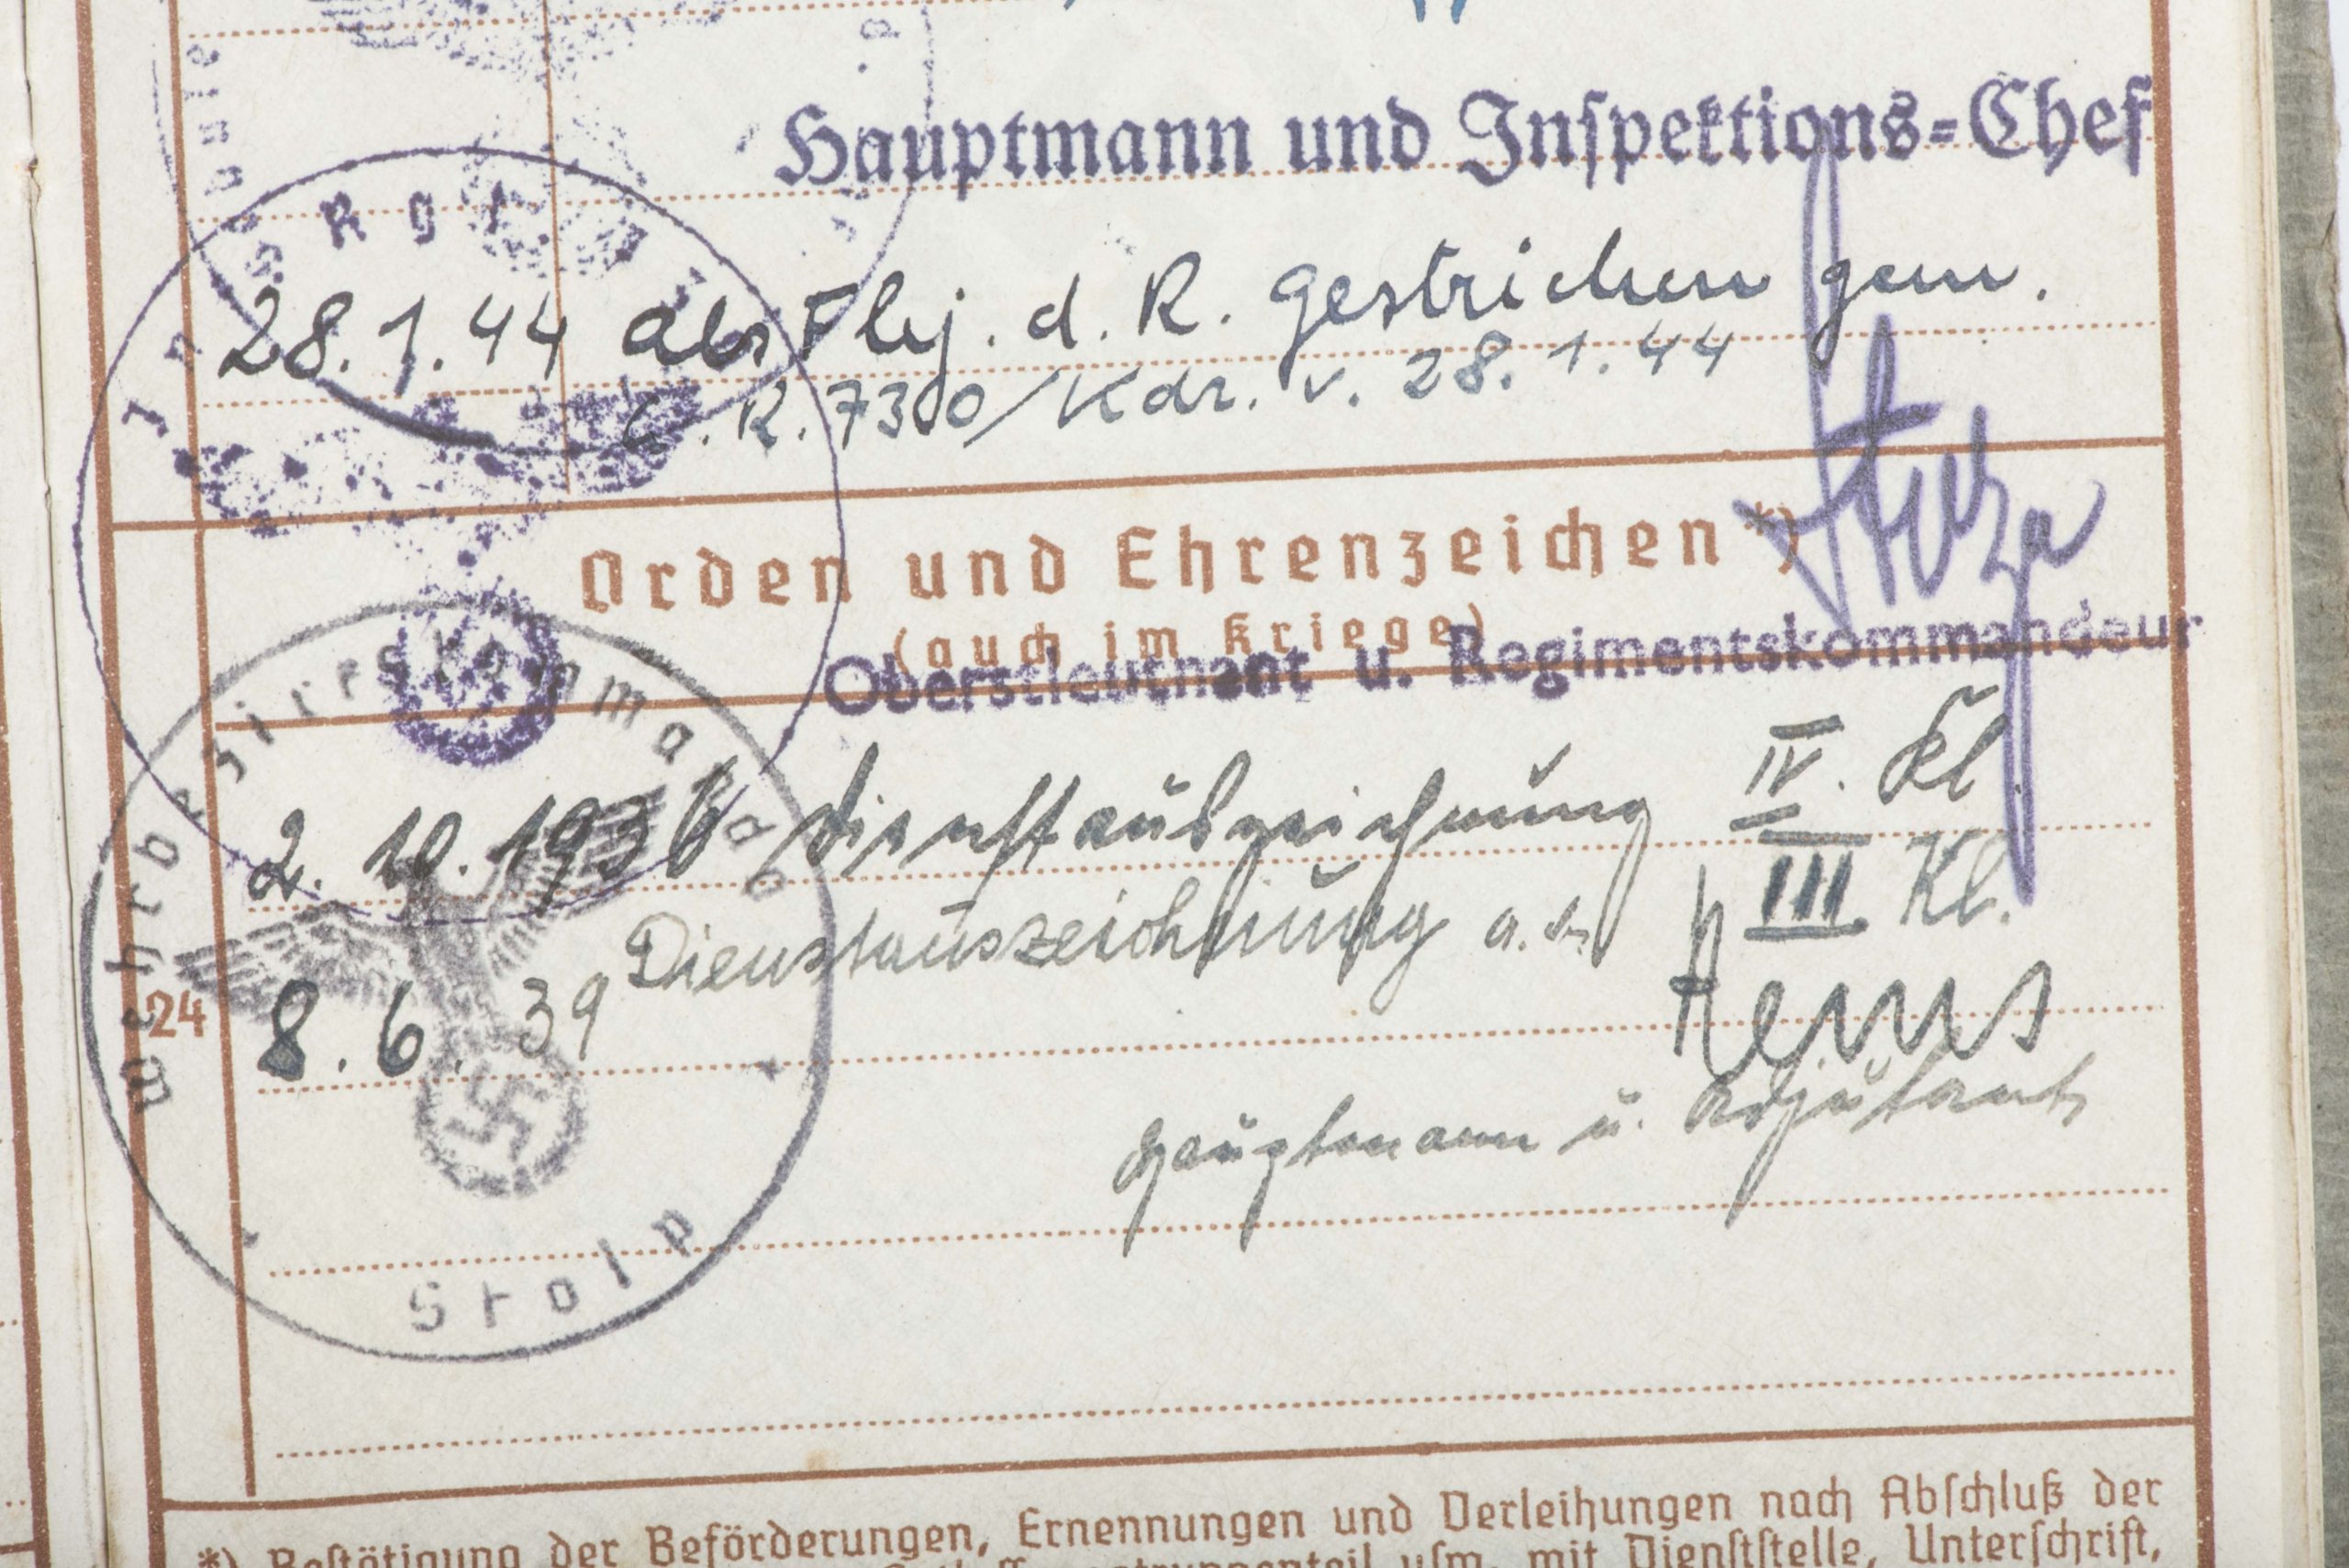 Hauptmann und Inspektions=Chef
28.1.44 als Fhj. d. R. gestrichen gem.
R. 7300/Kdr. v. 28.1.44
Orden und Ehrenzeichen *)
(auch im Kriege)
Oberstleutnant u. Regimentskommandeur
2. 10. 1936 Dienstauszeichnung IV. Kl
8. 6. 39 Dienstauszeichnung III. Kl.
Hauptmann u. Adjutant
24
Wehrbezirkskommando
Stolp
*) Bestätigung der Beförderungen, Ernennungen und Verleihungen nach Abschluß der
usw. mit Dienststelle, Unterschrift,